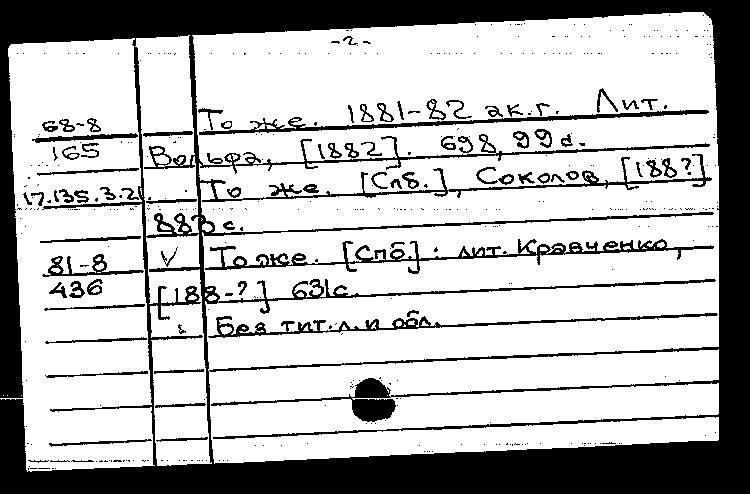 -2-
68-8 То же. 1881-82 ак.г. Лит.
165 Вольфа, [1882]. 698, 99 с.
17.135.3.21. То же. [Спб.], Соколов, [188?]
883 с.
81-8 V То же. [Спб.]: лит. Кравченко,
436 [188-?] 631с.
Без тит.л. и обл.